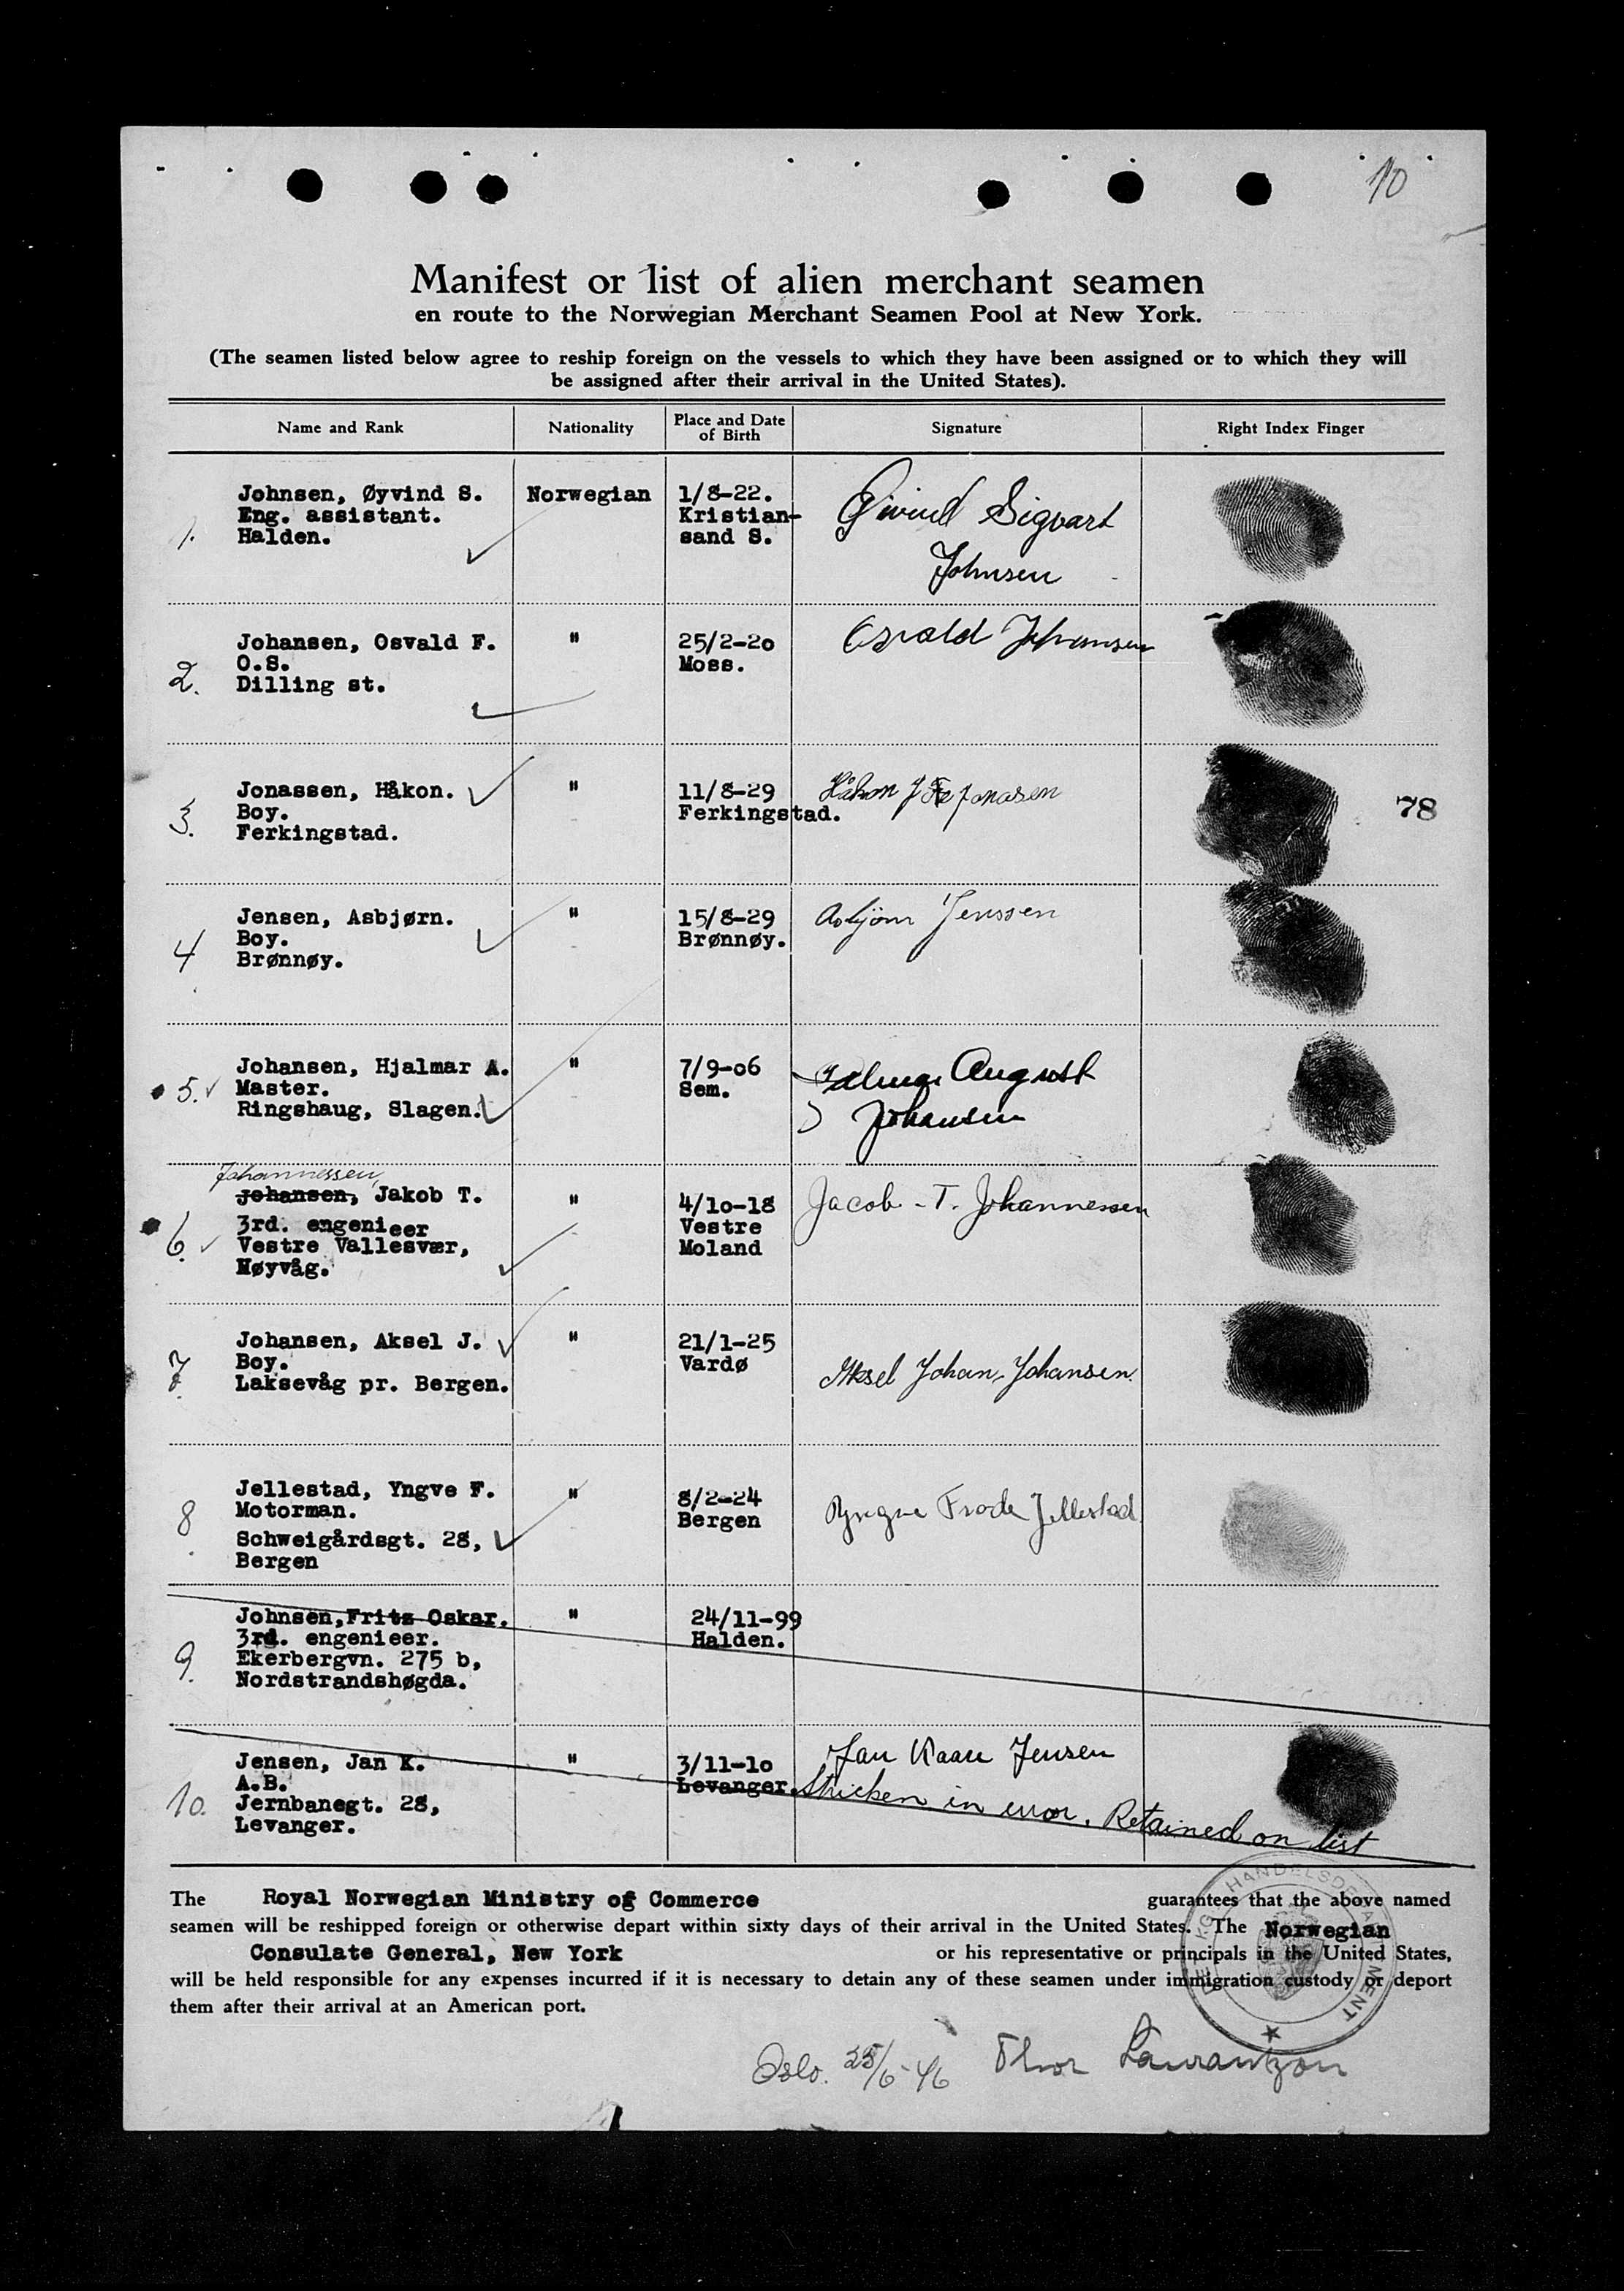 10
Manifest or list of alien merchant seamen
en route to the Norwegian Merchant Seamen Pool at New York.
(The seamen listed below agree to reship foreign on the vessels to which they have been assigned or to which they will
be assigned after their arrival in the United States).
Name and Rank Nationality Place and Date of Birth Signature Right Index Finger
1. Johnsen, Øyvind S. Norwegian 1/8-22. Øivind Sigvart
Eng. assistant. Kristian-
Halden. sand S. Johnsen
2. Johansen, Osvald F. " 25/2-20 Osvald Johansen
O.S. Moss.
Dilling st.
3. Jonassen, Håkon. " 11/8-29 Håkon J Jonasen
Boy. Ferkingstad. 78
Ferkingstad.
4 Jensen, Asbjørn. " 15/8-29 Asbjörn Jenssen
Boy. Brønnøy.
Brønnøy.
5. Johansen, Hjalmar A. " 7/9-06 August
Master. Sem. Johansen
Ringshaug, Slagen.
Johannessen,
6. Johansen, Jakob T. " 4/10-18 Jacob - T. Johannessen
3rd. engenieer Vestre
Vestre Vallesvær, Moland
Høyvåg.
7. Johansen, Aksel J. " 21/1-25 Aksel Johan Johansen
Boy. Vardø
Laksevåg pr. Bergen.
8 Jellestad, Yngve F. " 8/2-24 Yngve Frode Jellestad
Motorman. Bergen
Schweigårdsgt. 28,
Bergen
9. Johnsen, Fritz Oskar. " 24/11-99
3rd. engenieer. Halden.
Ekerbergvn. 275 b,
Nordstrandshøgda.
10. Jensen, Jan K. " 3/11-10 Jan Kaare Jensen
A.B. Levanger. Stricken in error. Retained on list
Jernbanegt. 28,
Levanger.
The Royal Norwegian Ministry of Commerce guarantees that the above named
seamen will be reshipped foreign or otherwise depart within sixty days of their arrival in the United States. The Norwegian
Consulate General, New York or his representative or principals in the United States,
will be held responsible for any expenses incurred if it is necessary to detain any of these seamen under immigration custody or deport
them after their arrival at an American port.
DET KGL. HANDELSDEPARTEMENT
Oslo. 25/6-46 Thor Laurantzon